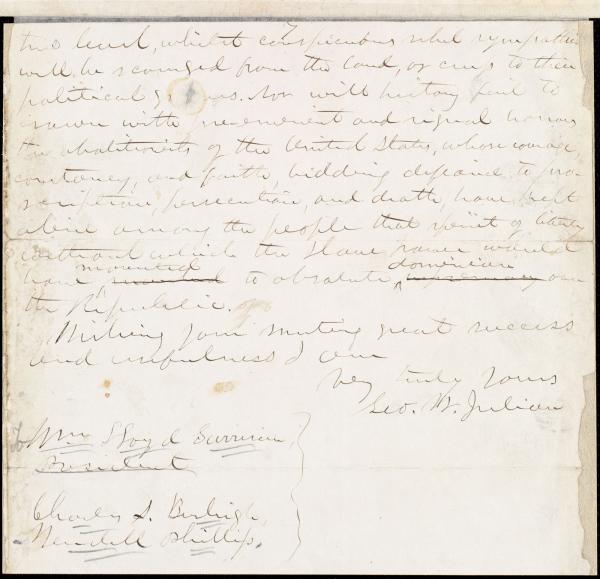 two level, whilst conspicuous rebel sympathies
will be scourged from the land, or creep to their
political graves. Nor will history fail to
crown with pre-eminent and signal honors
the abolitionists of the United States, whose courage,
constancy, and faith, bidding defiance to pro-
scription, persecution, and death, have kept
alive among the people that spirit of liberty
without which the slave power would
have mounted to absolute dominion over
the Republic.
Wishing your meeting great success
and usefulness I am
Very truly yours
Geo. W. Julian
To Wm Lloyd Garrison,
President
Charles S. Burleigh,
Wendell Phillips.